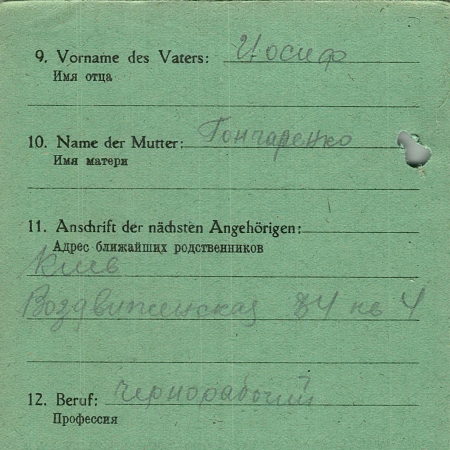 9. Vorname des Vaters: Иосиф
Имя отца
10. Name der Mutter: Гончаренко
Имя матери
11. Anschrift der nächsten Angehörigen:
Адрес ближайших родственников
Киев
Воздвиженская 84 кв 4
12. Beruf: чернорабочий
Профессия